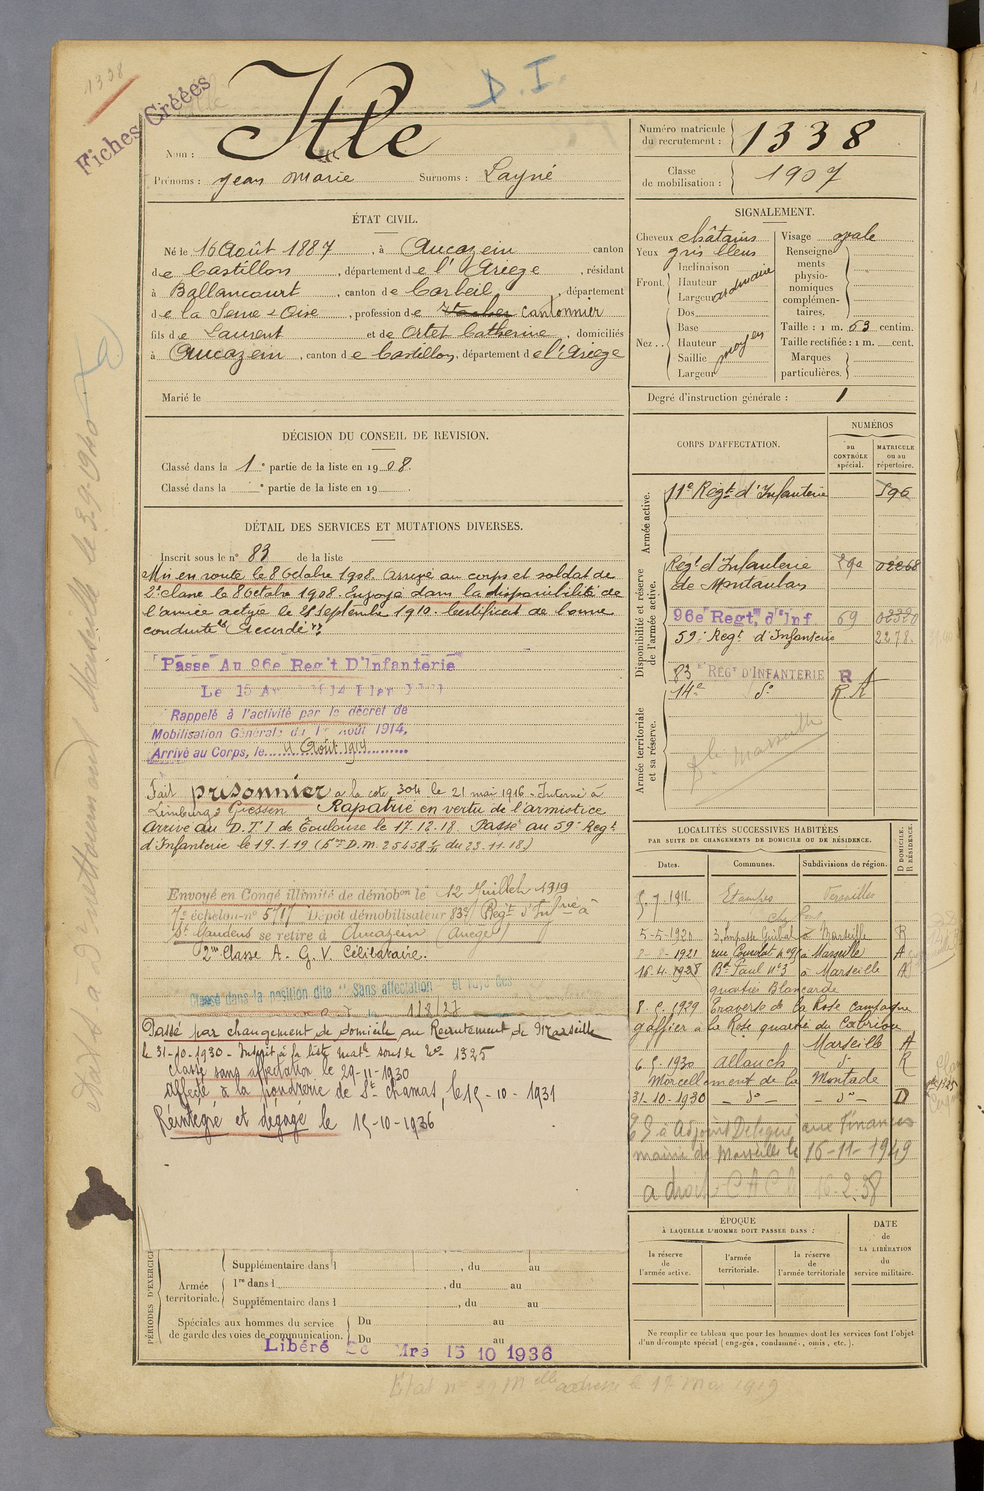 1338
Fiches Créées
D. I.
Nom : Itle
Prénoms : Jean Marie Surnoms : Layné
Numéro matricule du recrutement : 1338
Classe de mobilisation : 1907
ÉTAT CIVIL.
Né le 16 Août 1887, à Aucazein canton
de Castillon, département de l'Ariège, résidant
à Ballancourt, canton de Corbeil, département
de la Seine & Oise, profession de cantonnier
fils de Laurent et de Ortet Catherine, domiciliés
à Aucazein, canton de Castillon, département de l'Ariège
Marié le
SIGNALEMENT.
Cheveux châtains
Yeux gris bleus
Front. Inclinaison
Hauteur
Largeur ordinaire
Nez.. Dos
Base
Hauteur
Saillie moyen
Largeur
Visage ovale
Renseignements physionomiques complémentaires.
Taille : 1 m. 63 centim.
Taille rectifiée : 1 m. cent.
Marques particulières.
Degré d'instruction générale : 1
DÉCISION DU CONSEIL DE REVISION.
Classé dans la 1e partie de la liste en 1908.
Classé dans la e partie de la liste en 19
DÉTAIL DES SERVICES ET MUTATIONS DIVERSES.
Inscrit sous le n° 83 de la liste
Mis en route le 8 Octobre 1908. Arrivé au corps et soldat de
2e classe le 8 Octobre 1908. Envoyé dans la disponibilité de
l'armée active le 28 septembre 1910. Certificat de bonne
conduite "Accordé"
Passé Au 96e Reg't D'Infanterie
Rappelé à l'activité par le décret de
Mobilisation Générale du 1er Août 1914,
Arrivé au Corps, le 4 Août 1914
Fait prisonnier à la cote 304 le 21 mai 1916 - Interné à
Limburg & Giessen Rapatrié en vertu de l'armistice
Arrivé au D.T.I de Toulouse le 17.12.18 Passé au 59e Régt
d'Infanterie le 19.1.19
Envoyé en Congé illimité de démobon le 12 Juillet 1919
7e échelon n° 5717 Dépôt démobilisateur 83e Régt d'Infrie à
St Gaudens se retire à Aucazein (Ariège)
2me Classe A. G. V. Célibataire.
Classé dans la position dite "Sans affectation" et rayé des
1/8/27
Passé par changement de domicile au Recrutement de Marseille
le 31-10-1930 - Inscrit à la liste matle sous le No 1325
Classé sans affectation le 29-11-1930
Affecté à la poudrerie de St Chamas, le 15-10-1931
Réintégré et dégagé le 15-10-1936
CORPS D'AFFECTATION.
NUMÉROS
au CONTRÔLE spécial.
MATRICULE ou au répertoire.
Armée active.
11e Régt d'Infanterie 596
Disponibilité et réserve de l'armée active.
Régt d'Infanterie de Montauban 290 02268
96e Regt, d'Inf 69 02320
59e Régt d'Infanterie 2278
Armée territoriale et sa réserve.
83e RÉGt D'INFANTERIE R A
14e do R A
Marseille
LOCALITÉS SUCCESSIVES HABITÉES
PAR SUITE DE CHANGEMENTS DE DOMICILE OU DE RÉSIDENCE.
Dates. Communes. Subdivisions de région. D DOMICILE. R RÉSIDENCE.
5-7-1911 Etampes Versailles
5-5-1920 3, Impasse Guibal à Marseille R
8-8-1921 rue Consolat à Marseille A
16.4.1928 Bd Paul n°3 à Marseille A
quartier Blancarde
8-5-1929 Traverse de la Rose campagne
à la Rose quartier du
Marseille A
6 5-1930 Allauch do R
Morcellement de la Montade
31-10-1930 do do D
Adjoint Délégué aux Finances
mairie de Marseille le 16-11-1949
a droit C A C 16-2-38
ÉPOQUE
À LAQUELLE L'HOMME DOIT PASSER DANS :
la réserve de l'armée active.
l'armée territoriale.
la réserve de l'armée territoriale
DATE de LA LIBÉRATION du service militaire.
Ne remplir ce tableau que pour les hommes dont les services font l'objet
d'un décompte spécial (engagés, condamnés, omis, etc.).
PÉRIODES D'EXERCICES
Armée territoriale.
Supplémentaire dans l , du au
1re dans l , du au
Supplémentaire dans l , du au
Spéciales aux hommes du service de garde des voies de communication.
Du au
Du au
Libéré 15 10 1936